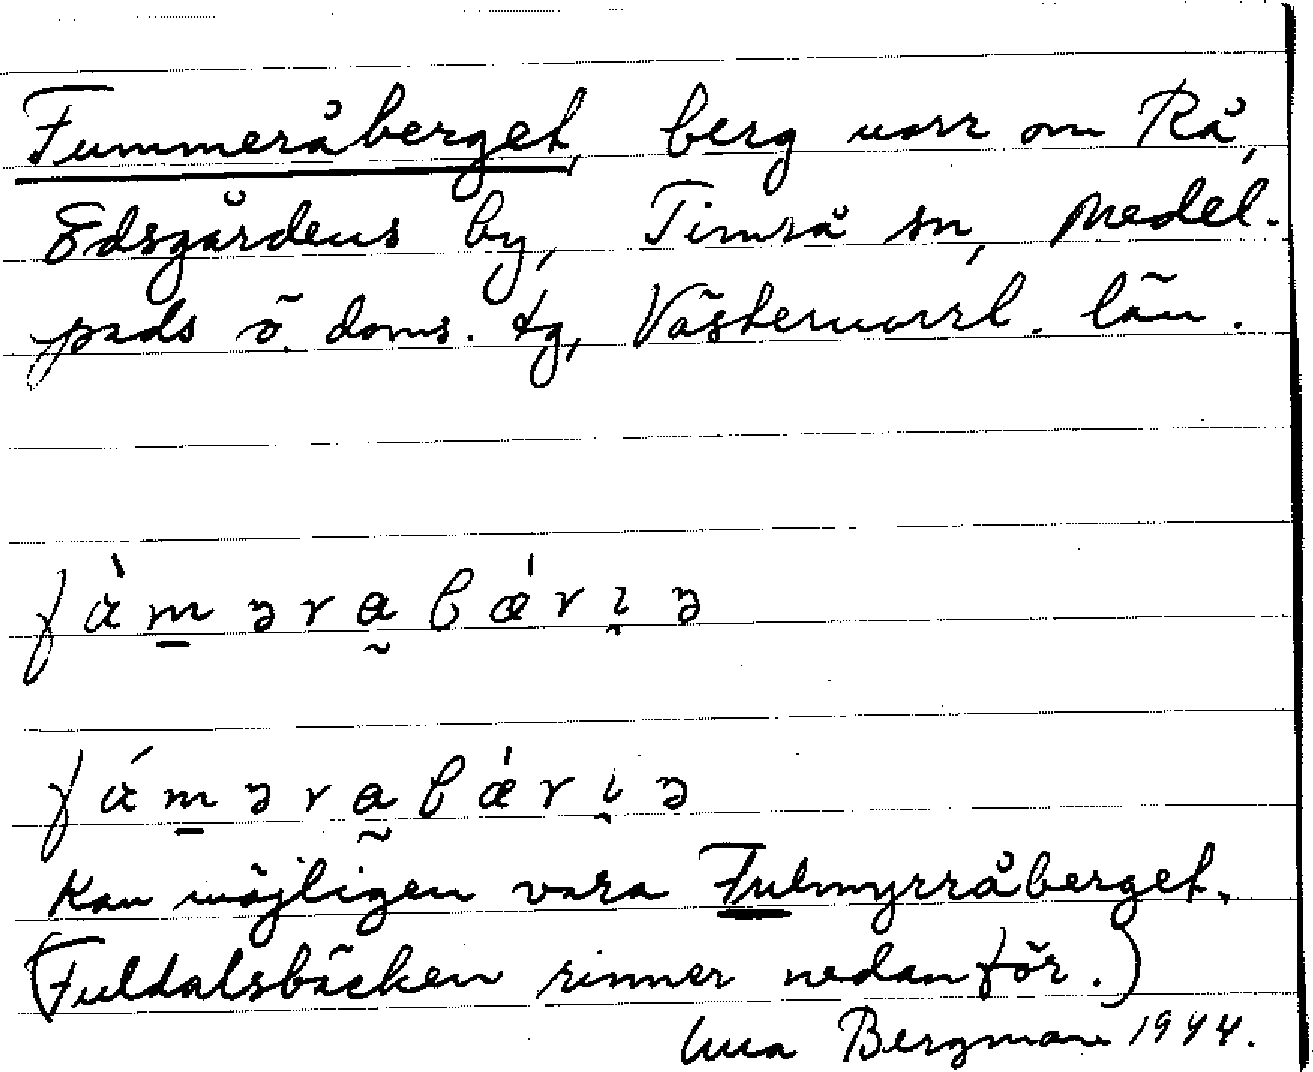 Fummeråberget, berg norr om Rå,
Edsgårdens by, Timrå sn, Medel-
pads ö. doms. tg, Västernorrl. län.
fɑ̀m̲əra̰bǽrɩ̰ə
fɑ́m̲əra̰bǽrɩ̰ə
Kan möjligen vara Fulmyrråberget.
(Fuldalsbäcken rinner nedanför.)
Bergman 1944.